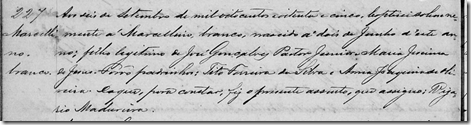 227 Aos seis de Setembro de mil oitocentos e oitenta e cinco, baptisei solemne
Marcelli mente a Marcellino, branco, nascido a dois de Junho d'este an
no. no; filho legitimo de José Gonçalves Pastor Junior e Maria Joaquina
branco. de Jesus. Forão padrinhos, Tito Ferreira da Silva e Anna Joaquina de Oli
veira Caque, para constar, fiz o presente assento, que assignei. Viga
rio Madureira.